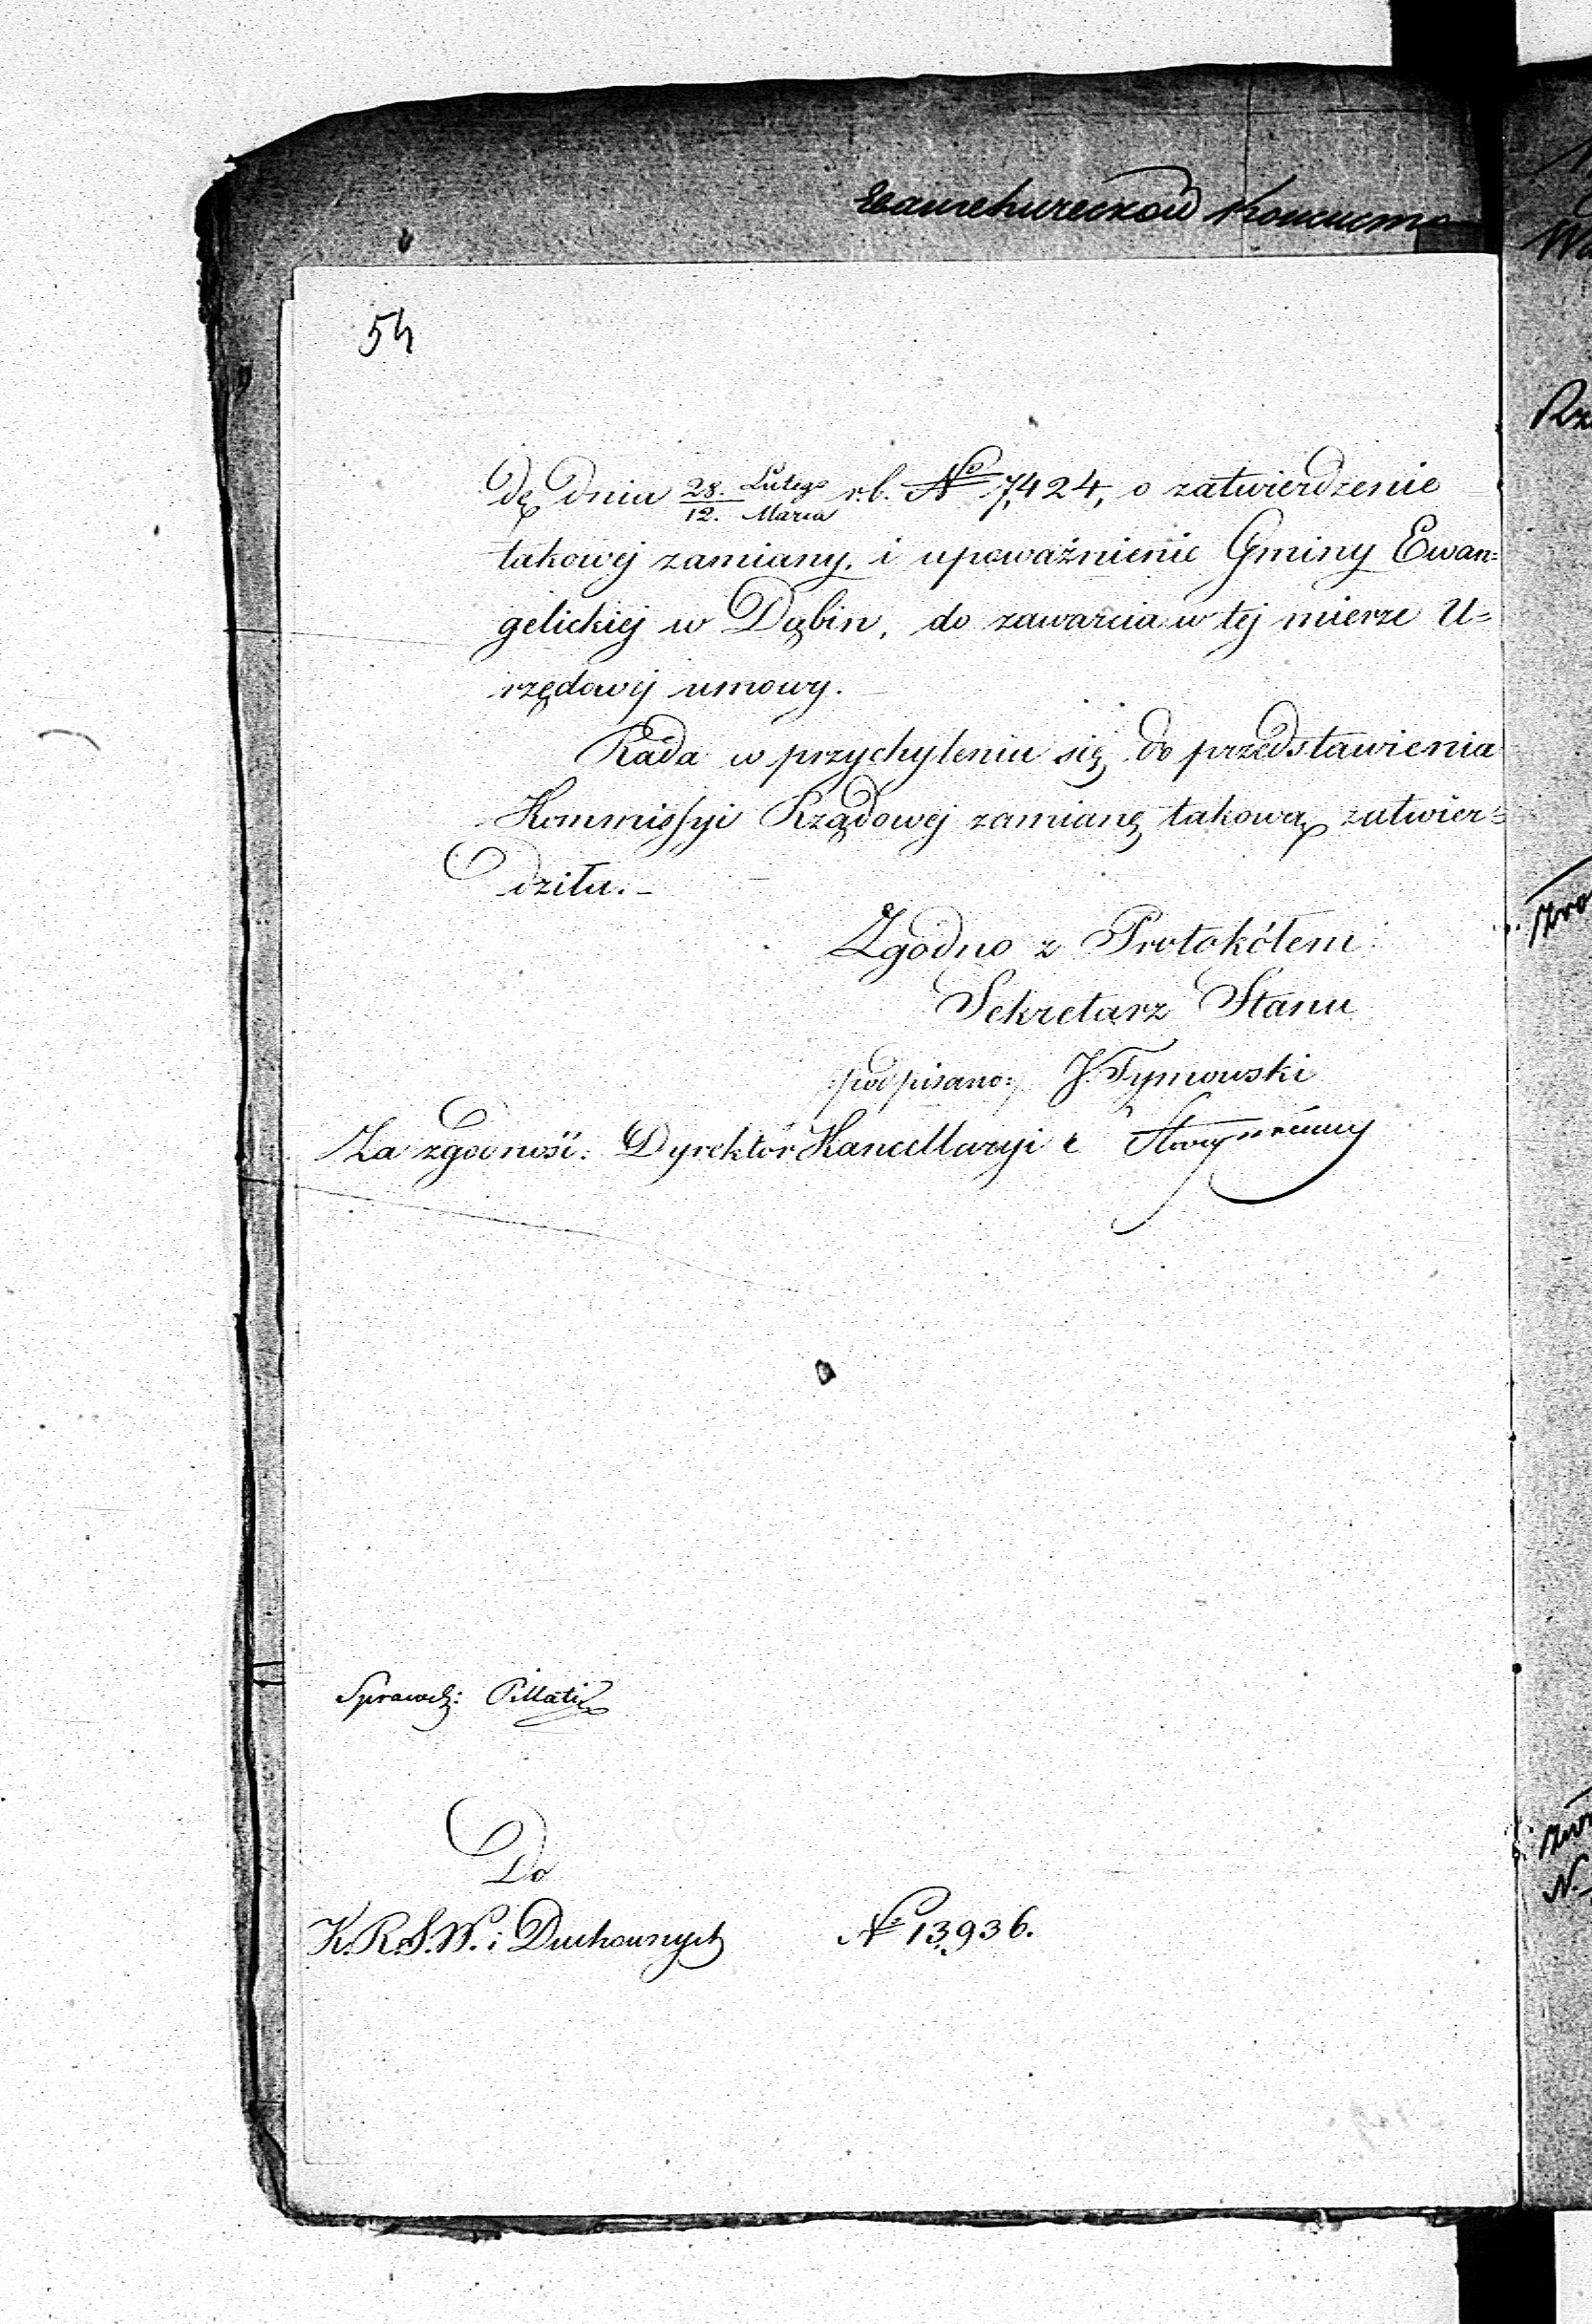 54
dę dnia 28. Lutego / 12. Marca r.b. № 7,424, o zatwierdzenie
takowej zamiany, i upoważnienie Gminy Ewan=
gelickiej w Dąbiu, do zawarcia w tej mierze U=
rzędowej umowy.
Rada w przychyleniu się do przedstawienia
Kommissyi Rządowej zamianę takową zatwier=
dziła. –
Zgodno z Protokółem
Sekretarz Stanu
:podpisano: J. Tymowski
Za zgodność: Dyrektór Kancellaryi
Sprawdz: Pillati
Do
K.R.S.W. i Duchownych № 13,936.